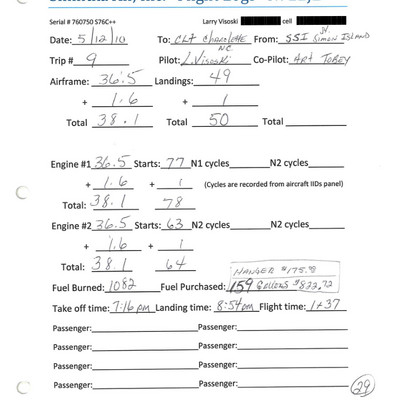 Serial # 760750 S76C++ Larry Visoski cell
Date: 5/12/10 To: CLT Charlotte NC From: SSI St. Simon Island
Trip # 9 Pilot: L. Visoski Co-Pilot: Art Tobey
Airframe: 36.5 Landings: 49
+ 1.6 + 1
Total 38.1 Total 50 Total
Engine #1 36.5 Starts: 77 N1 cycles N2 cycles
+ 1.6 + 1 (Cycles are recorded from aircraft IIDs panel)
Total: 38.1 78
Engine #2 36.5 Starts: 63 N2 cycles N2 cycles
+ 1.6 + 1
Total: 38.1 64
HANGER $175.
Fuel Burned: 1082 Fuel Purchased: 159 Gallons $822.72
Take off time: 7:16 pm Landing time: 8:54 pm Flight time: 1+37
Passenger: Passenger:
Passenger: Passenger:
Passenger: Passenger:
Passenger: Passenger:
29